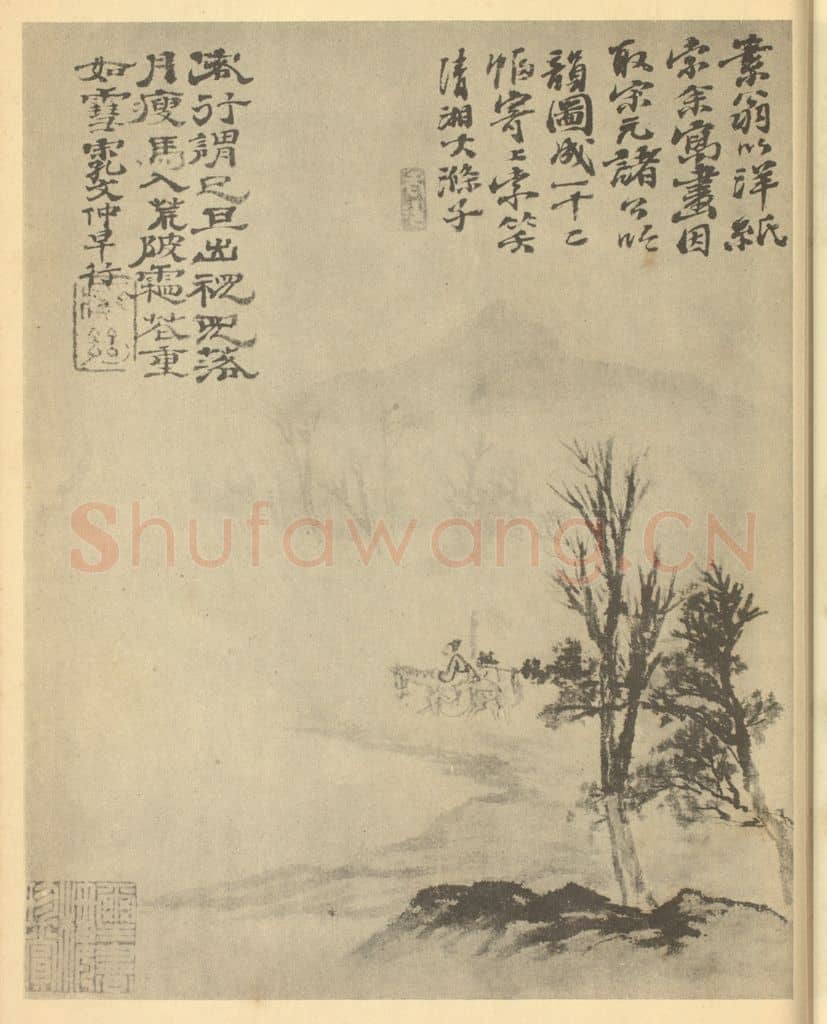 翁以洋紙
索余寫畫因
取宋元諸公吟
韻圖成一十二
幅寄上索笑
清湘大滌子
行謂已旦出視見落
月瘦馬入荒陂霜花重
如雪孔文仲早行
Shufawang.CN